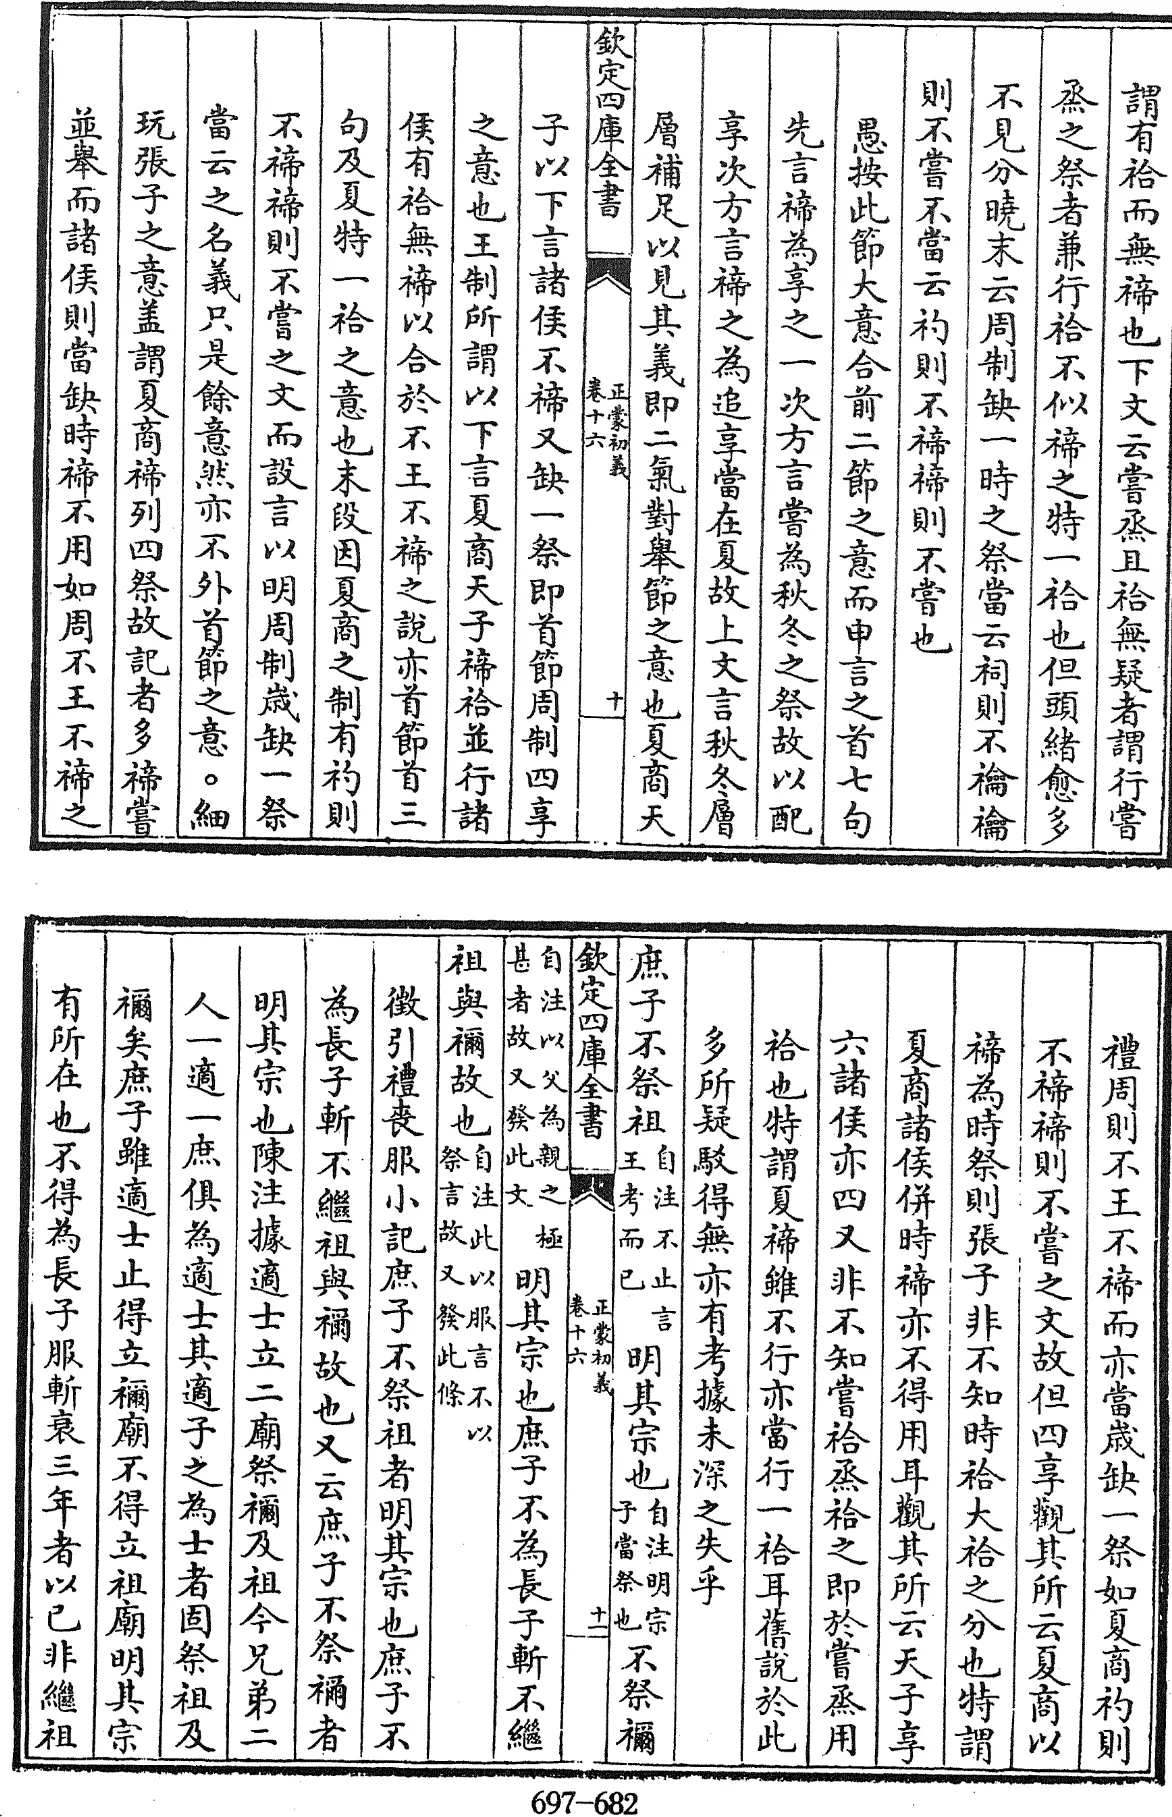 謂有祫而無禘也下文云嘗烝且祫無疑者謂行嘗
烝之祭者兼行祫不似禘之特一祫也但頭緒愈多
不見分曉末云周制缺一時之祭當云祠則不禴禴
則不嘗不當云礿則不禘禘則不嘗也
愚按此節大意合前二節之意而申言之首七句
先言禘為享之一次方言嘗為秋冬之祭故以配
享次方言禘之為追享當在夏故上文言秋冬層
層補足以見其義即二氣對舉節之意也夏商天
欽定四庫全書
正蒙初義
卷十六
十
子以下言諸侯不禘又缺一祭即首節周制四享
之意也王制所謂以下言夏商天子禘祫並行諸
侯有祫無禘以合於不王不禘之說亦首節首三
句及夏特一祫之意也末段因夏商之制有礿則
不禘禘則不嘗之文而設言以明周制歲缺一祭
當云之名義只是餘意然亦不外首節之意。細
玩張子之意盖謂夏商禘列四祭故記者多禘嘗
並舉而諸侯則當缺時禘不用如周不王不禘之
禮周則不王不禘而亦當歲缺一祭如夏商礿則
不禘禘則不嘗之文故但四享觀其所云夏商以
禘為時祭則張子非不知時祫大祫之分也特謂
夏商諸侯併時禘亦不得用耳觀其所云天子享
六諸侯亦四又非不知嘗祫烝祫之即於嘗烝用
祫也特謂夏禘雖不行亦當行一祫耳舊說於此
多所疑駁得無亦有考據未深之失乎
庶子不祭祖自注不止言王考而已明其宗也自注明宗子當祭也不祭禰
欽定四庫全書
正蒙初義
卷十六
十一
自注以父為親之極甚者故又發此文明其宗也庶子不為長子斬不繼
祖與禰故也自注此以服言不以祭言故又發此條
徵引禮喪服小記庶子不祭祖者明其宗也庶子不
為長子斬不繼祖與禰故也又云庶子不祭禰者
明其宗也陳注據適士立二廟祭禰及祖今兄弟二
人一適一庶俱為適士其適子之為士者固祭祖及
禰矣庶子雖適士止得立禰廟不得立祖廟明其宗
有所在也不得為長子服斬衰三年者以已非繼祖
697-682